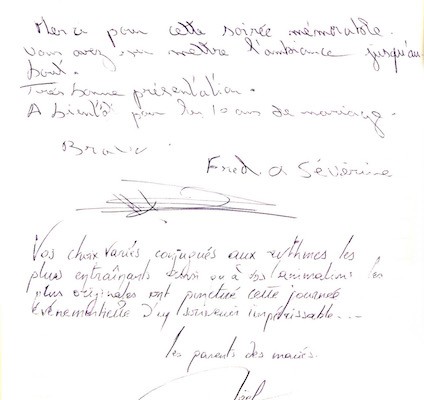 Merci pour cette soirée mémorable.
Vous avez su mettre l'ambiance jusqu'au
bout.
Très bonne présentation.
A bientôt pour les 10 ans de mariage.
Bravo
Fred & Séverine
Vos choix variés conjugués aux rythmes les
plus entraînants ainsi qu'à vos animations les
plus originales ont ponctué cette journée
événementielle d'un souvenir impérissable...
les parents des mariés.